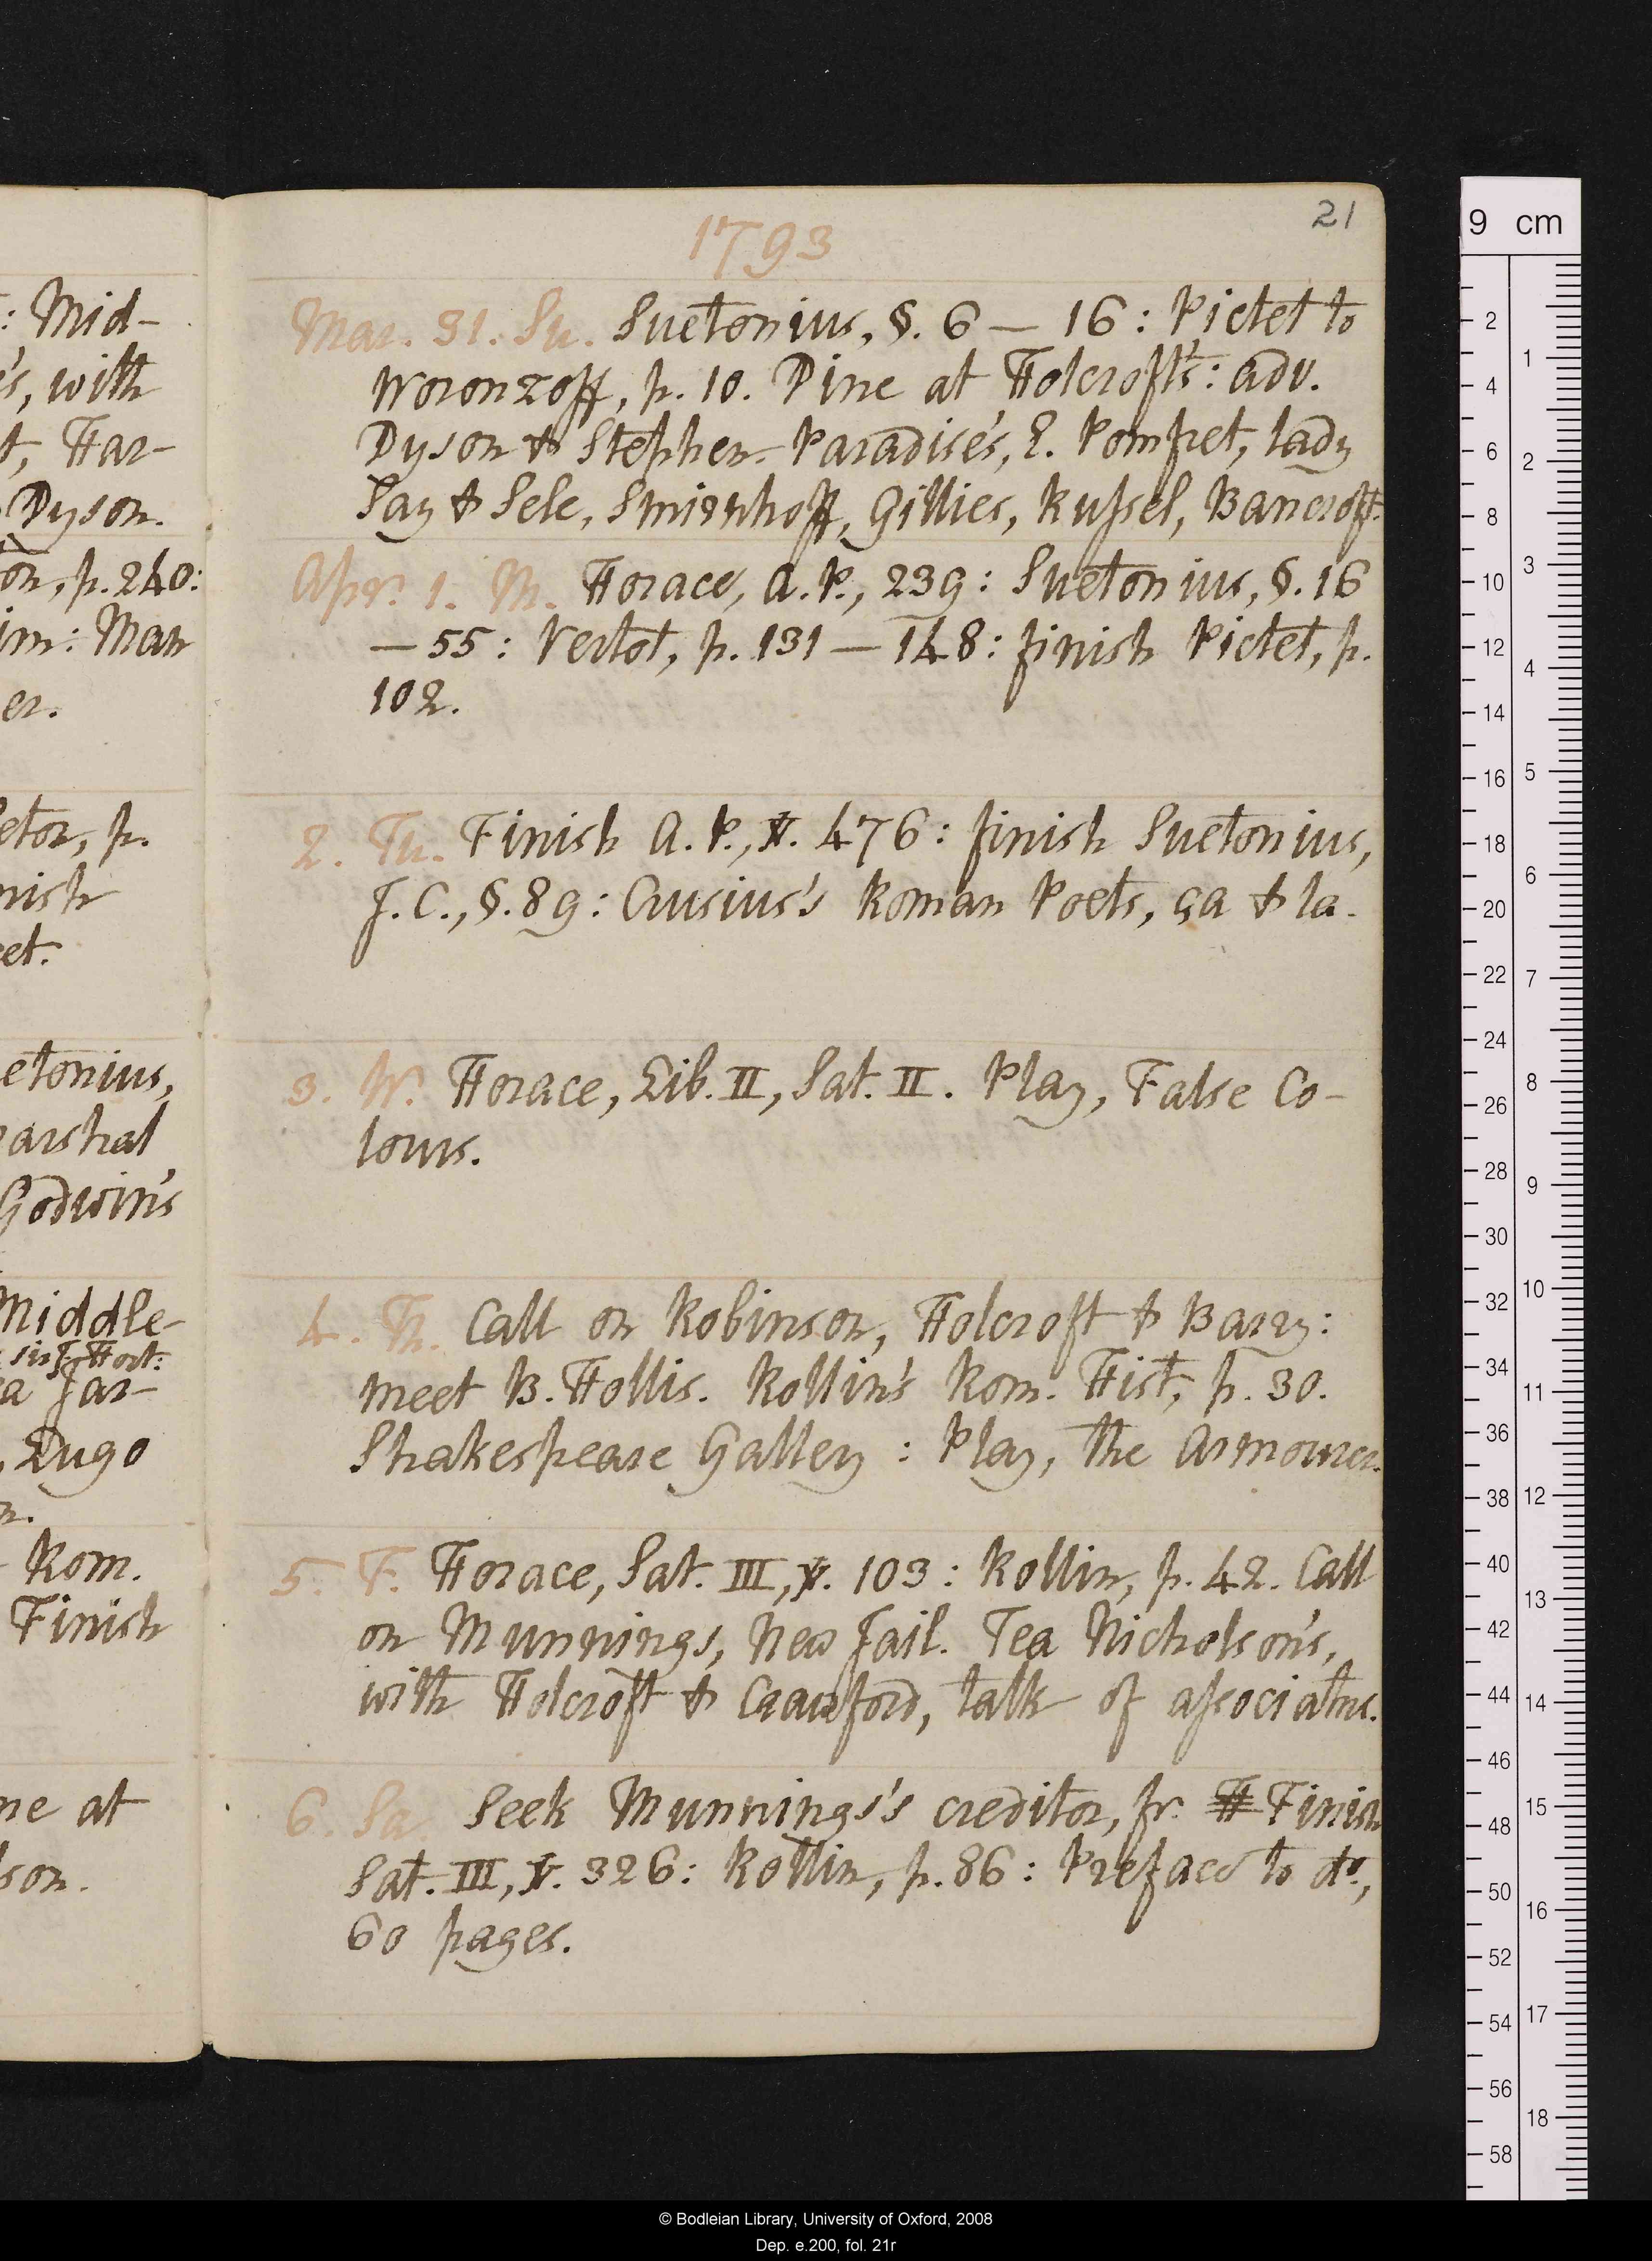 21
1793
: Mid-
's, with
t, Har-
Dyson.
Mar. 31. Su. Suetonius, §. 6 — 16: Pictet to
Woronzoff, p. 10. Dine at Holcroft's: adv.
Dyson & Stephen. Paradise's, E. Pomfret, lady
Say & Sele, Smirnhoff, Gillies, Russel, Bancroft.
on, p. 240:
im: Man
er.
Apr. 1. M. Horace, A. P., 239: Suetonius, §. 16
— 55: Vertot, p. 131 — 148: finish Pictet, p.
102.
etor, p.
nish
et.
2. Tu. Finish A. P., v. 476: finish Suetonius,
J. C., §. 89: Crusius's Roman Poets, ça & la.
etonius,
arshal
Godwin's
3. W. Horace, Lib. II, Sat. II. Play, False Co-
lours.
Middle-
a Jar-
Lugo
n.
4. Th. Call on Robinson, Holcroft & Barry:
meet B. Hollis. Rollin's Rom. Hist, p. 30.
Shakespeare Gallery: Play, the Armourer.
Rom.
Finish
5. F. Horace, Sat. III, v. 103: Rollin, p. 42. Call
on Munnings, New Jail. Tea Nicholson's,
with Holcroft & Crawford, talk of associatns.
ne at
son.
6. Sa. Seek Munnings's creditor, fr. H Finish
Sat. III, v. 326: Rollin, p. 86: Preface to do.,
60 pages.
9 cm
2
4
6
8
10
12
14
16
18
20
22
24
26
28
30
32
34
36
38
40
42
44
46
48
50
52
54
56
58
1
2
3
4
5
6
7
8
9
10
11
12
13
14
15
16
17
18
© Bodleian Library, University of Oxford, 2008
Dep. e.200, fol. 21r